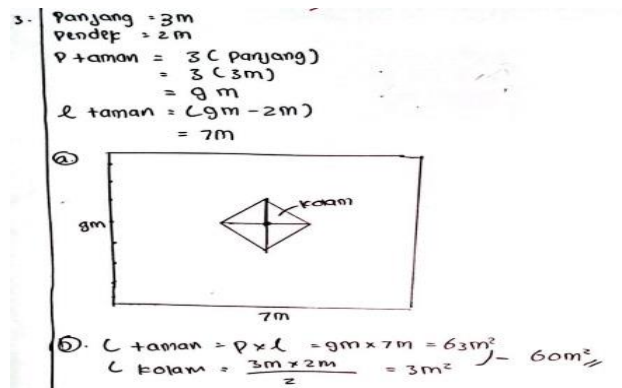 3. Panjang = 3m
Pendek = 2m
P taman = 3 (Panjang)
= 3 (3m)
= 9 m
l taman = (9m - 2m)
= 7m
a
kolam
9m
7m
b. L taman = P x l = 9m x 7m = 63m²
L kolam = 3m x 2m / 2 = 3m² )- 60m²